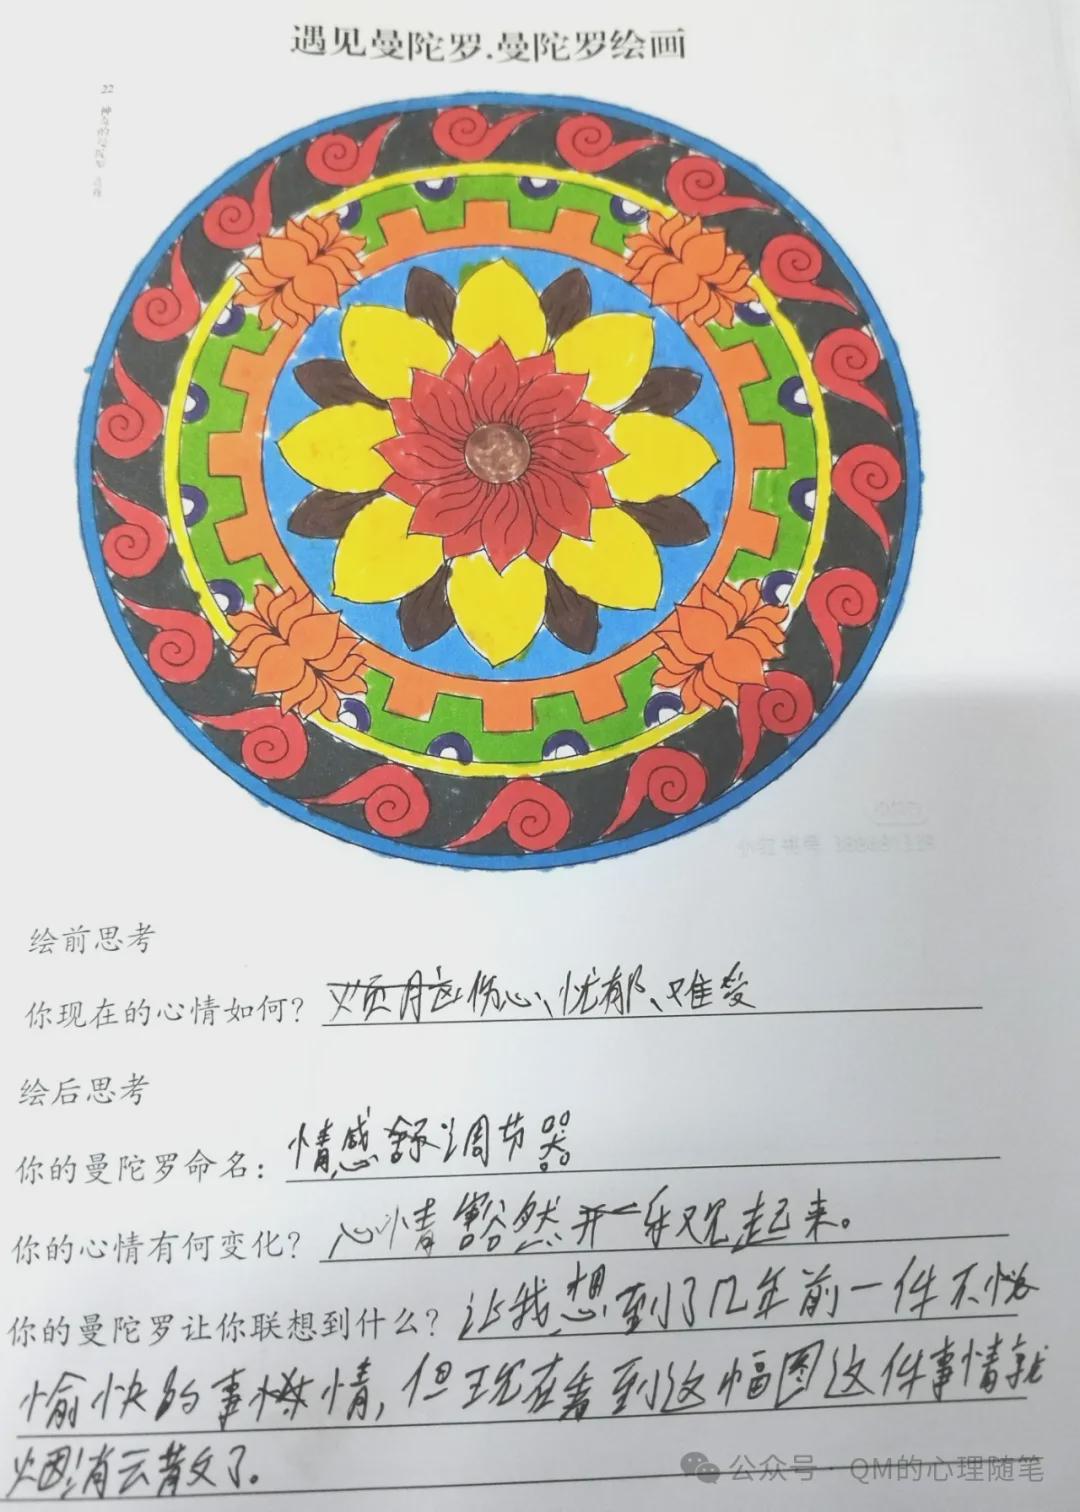 遇见曼陀罗.曼陀罗绘画
22
绘前思考
你现在的心情如何? 烦脑伤心、忧郁、难受
绘后思考
你的曼陀罗命名: 情感舒调节器
你的心情有何变化? 心情豁然开一乐观起来。
你的曼陀罗让你联想到什么? 让我想到了几年前一件不
愉快的事情,但现在看到这幅图这件事情就
烟消云散了。
公众号·QM的心理随笔